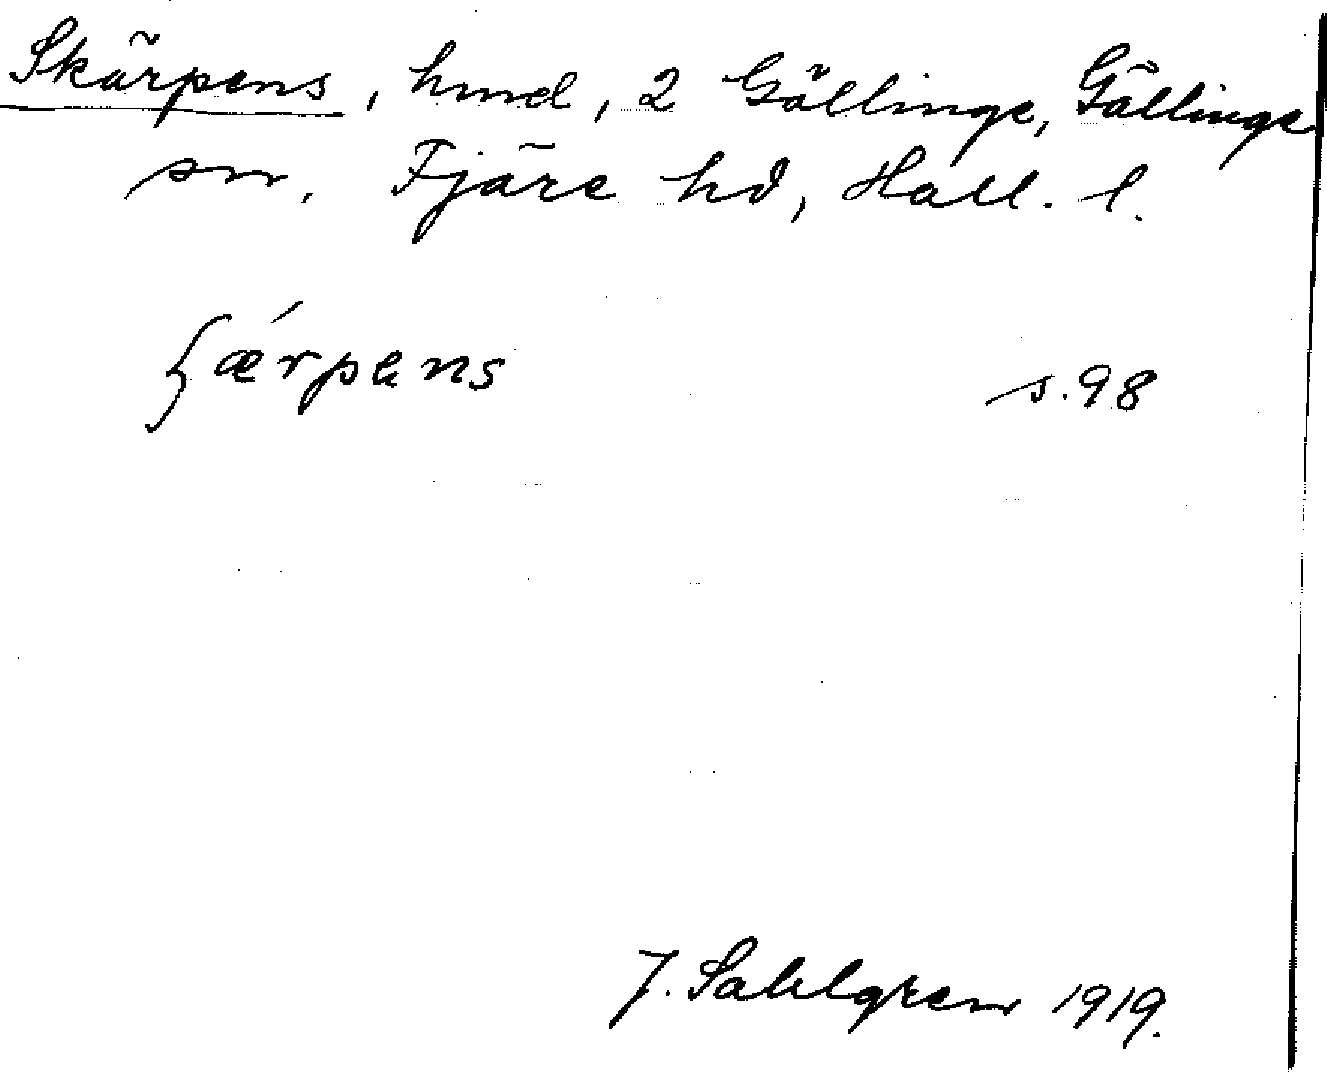 Skärpens, hmd, 2 Gällinge, Gällinge
sn. Fjäre hd, Hall. l.
ʃæ´rpens s. 98
J. Sahlgren 1919.